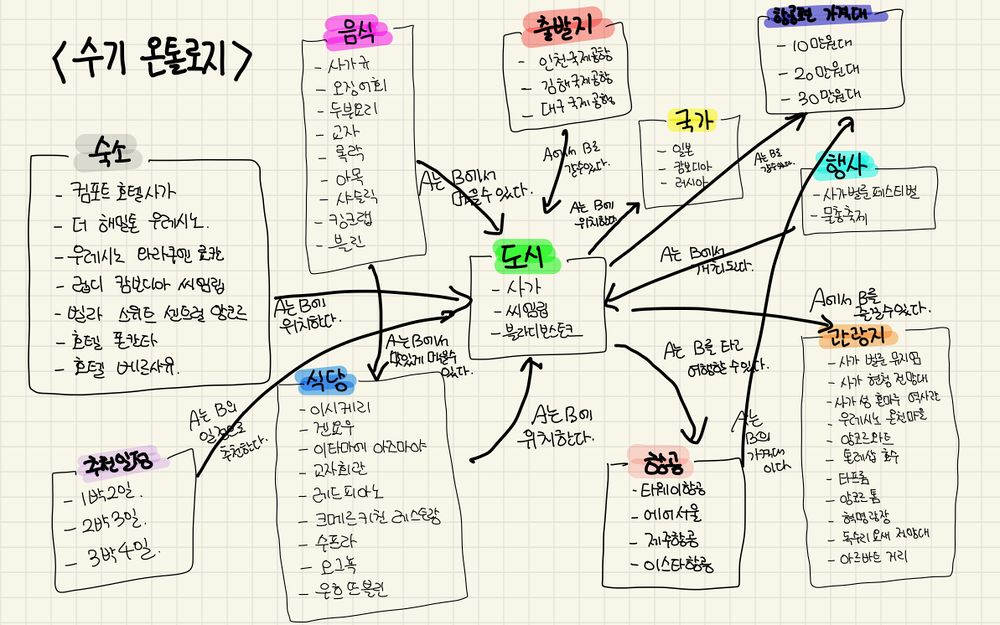 <수기 온톨로지>
음식
- 사가규
- 오징어회
- 두부요리
- 교자
- 록락
- 아목
- 샤슬릭
- 킹크랩
- 블린
출발지
- 인천국제공항
- 김해국제공항
- 대구국제공항
항공권 가격대
- 10만원대
- 20만원대
- 30만원대
국가
- 일본
- 캄보디아
- 러시아
행사
- 사가벌룬페스티벌
- 물축제
숙소
- 컴포트 호텔사가
- 더 해밀톤 우레시노.
- 우레시노 와라쿠엔 료칸
- 럽디 캄보디아 씨엠립
- 빌라 스위트 센트럴 앙코르
- 호텔 폰칸다
- 호텔 베르사유.
도시
- 사가
- 씨엠립
- 블라디보스토크
A는 B에서
먹을수 있다.
A에서 B를
갈수있다.
A는 B에
위치한다
A는 B로
갈수있다.
A는 B에서
개최된다.
A는 B에
위치한다.
A는 B에서
맛있게 먹을수
있다.
A에서 B를
즐길수있다.
A는 B를 타고
여행할 수있다.
A는 B의
일정으로
추천한다.
A는 B에
위치한다.
A는
B의
가격대
이다
추천일정
- 1박2일.
- 2박3일.
- 3박4일.
식당
- 이시케리
- 겐요우
- 이타마에 아즈마야
- 교자회관
- 레드피아노
- 크메르키친 레스토랑
- 수프라
- 오그뇩
- 우흐뜨블린
항공
- 티웨이항공
- 에어서울
- 제주항공
- 이스타항공
관광지
- 사가 벌룬 뮤지엄
- 사가 현청 전망대
- 사가 성 혼마루 역사관
- 우레시노 온천마을
- 앙코르와트
- 톤레삽 호수
- 타프롬
- 앙코르 톰
- 혁명광장
- 독수리요새 전망대
- 아르바트 거리